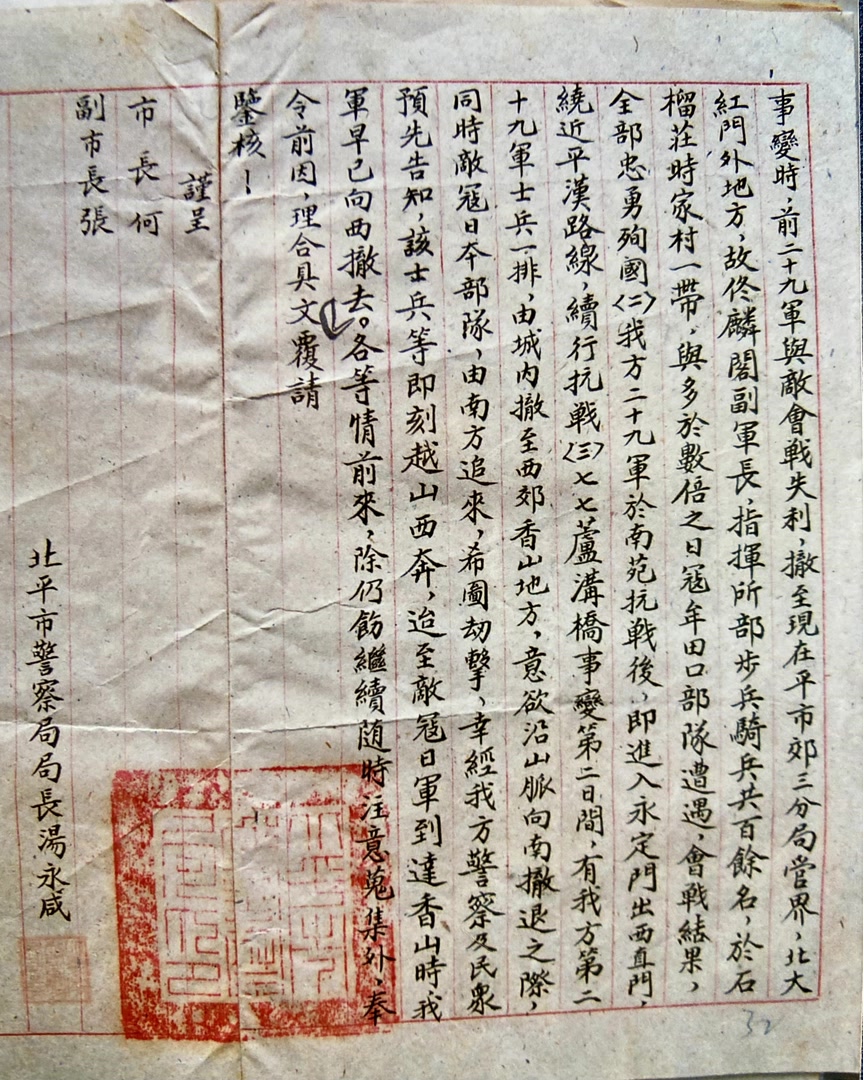 事變時，前二十九軍與敵會戰失利，撤至現在平市郊三分局営界，北大
紅門外地方，故佟麟閣副軍長，指揮所部步兵騎兵共百餘名，於石
榴莊時家村一帶，與多於數倍之日寇牟田口部隊遭遇，會戰結果，
全部忠勇殉國〈二〉我方二十九軍於南苑抗戰後，即進入永定門出西直門，
繞近平漢路線，續行抗戰〈三〉七七蘆溝橋事變第二日間，有我方第二
十九軍士兵一排，由城內撤至西郊香山地方，意欲沿山脈向南撤退之際，
同時敵寇日本部隊，由南方追來，希圖劫擊，幸經我方警察及民衆
預先告知，該士兵等即刻越山西奔，迨至敵寇日軍到達香山時，我
軍早已向西撤去。各等情前來，除仍飭繼續随時注意蒐集外，奉
令前因，理合具文覆請
鑒核！
謹呈
市長何
副市長張
北平市警察局局長湯永咸
32